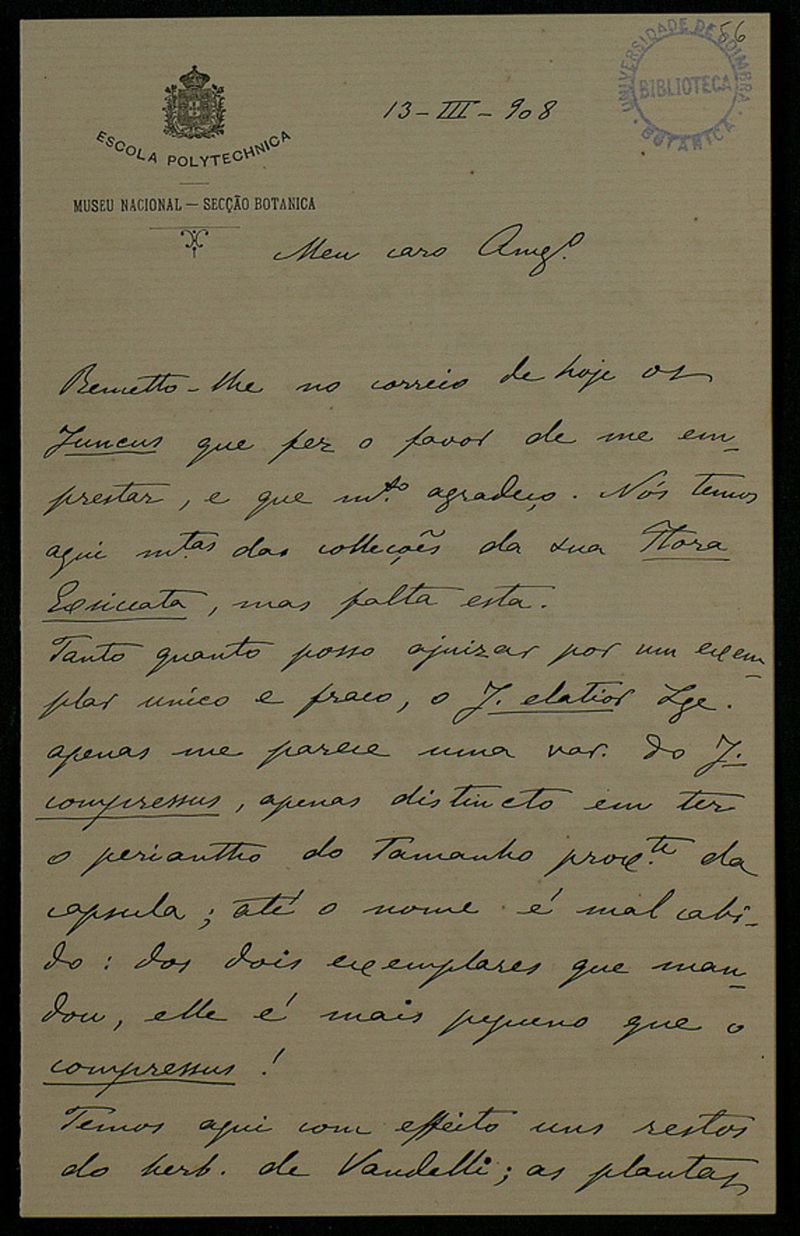 56
UNIVERSIDADE DE COIMBRA
BIBLIOTECA
BOTANICA
ESCOLA POLYTECHNICA
MUSEU NACIONAL — SECÇÃO BOTANICA
13-III-908
Meu caro Amgº.
Remetto-lhe no correio de hoje os
Juncus que fez o favor de me em-
prestar, e que mto. agradeço. Nós temos
aqui m.tas das collecções da sua Flora
Exsiccata, mas falta esta.
Tanto quanto posso ajuizar por um exem-
plar unico e fraco, o J. elatior Lge.
apenas me parece uma var. do J.
compressus, apenas distincto em ter
o periantho do tamanho prox.te da
capsula; até o nome é mal cabi-
do: dos dois exemplares que man-
dou, elle é mais pequeno que o
compressus!
Temos aqui com effeito uns restos
do herb. de Vandelli; as plantas